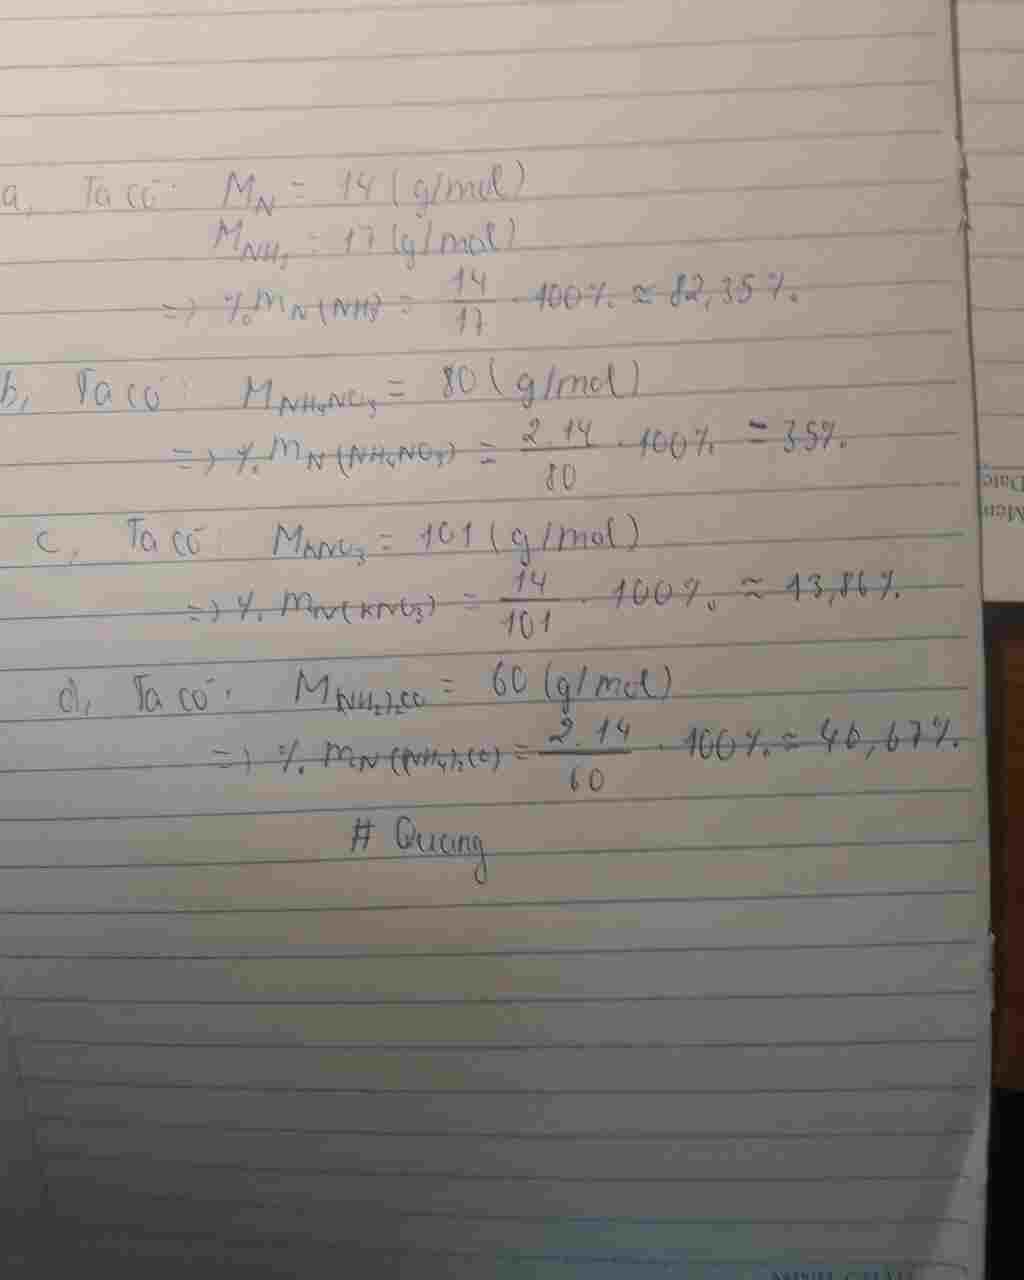 a, Ta có: M_N = 14 (g/mol)
M_NH₃ = 17 (g/mol)
=> %m_N(NH₃) = 14/17 . 100% ≈ 82,35%.
b, Ta có: M_NH₄NO₃ = 80 (g/mol)
=> %m_N(NH₄NO₃) = 2.14/80 . 100% = 35%.
c, Ta có: M_KNO₃ = 101 (g/mol)
=> %m_N(KNO₃) = 14/101 . 100% ≈ 13,86%.
d, Ta có: M_(NH₂)₂CO = 60 (g/mol)
=> %m_N((NH₂)₂CO) = 2.14/60 . 100% = 46,67%.
# Quang
Date